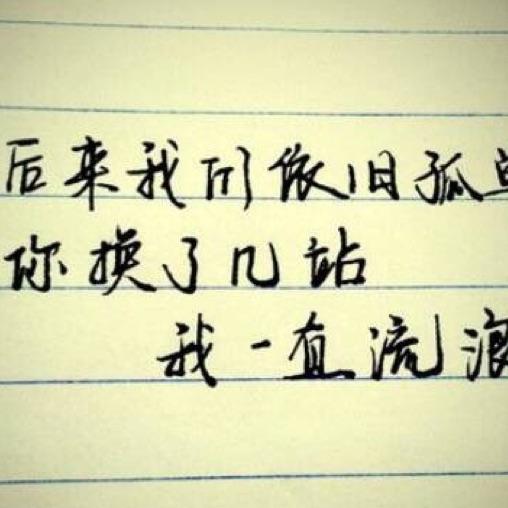 后来我们依旧孤单
你换了几站
我一直流浪